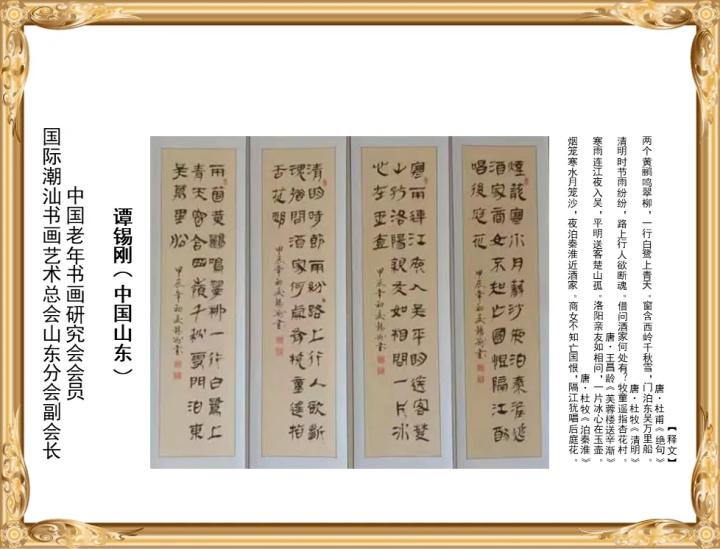 【释文】
唐·杜甫《绝句》
两个黄鹂鸣翠柳,一行白鹭上青天。窗含西岭千秋雪,门泊东吴万里船。
唐·杜牧《清明》
清明时节雨纷纷,路上行人欲断魂。借问酒家何处有?牧童遥指杏花村。
唐·王昌龄《芙蓉楼送辛渐》
寒雨连江夜入吴,平明送客楚山孤。洛阳亲友如相问,一片冰心在玉壶。
唐·杜牧《泊秦淮》
烟笼寒水月笼沙,夜泊秦淮近酒家。商女不知亡国恨,隔江犹唱后庭花。
煙籠寒水月籠沙夜泊秦淮近
酒家商女不知亡國恨隔江猶
唱後庭花
寒雨連江夜入吴平明送客楚
山孤洛陽親友如相問一片冰
心在玉壺
甲辰年初夏錫剛書
清明時節雨紛紛路上行人欲斷
魂借問酒家何處有牧童遥指
杏花邨
甲辰年初夏錫剛書
兩個黄鸝鳴翠柳一行白鷺上
青天窗含西嶺千秋雪門泊東
吴萬里船
甲辰年初夏錫剛書
谭锡刚(中国山东)
中国老年书画研究会会员
国际潮汕书画艺术总会山东分会副会长